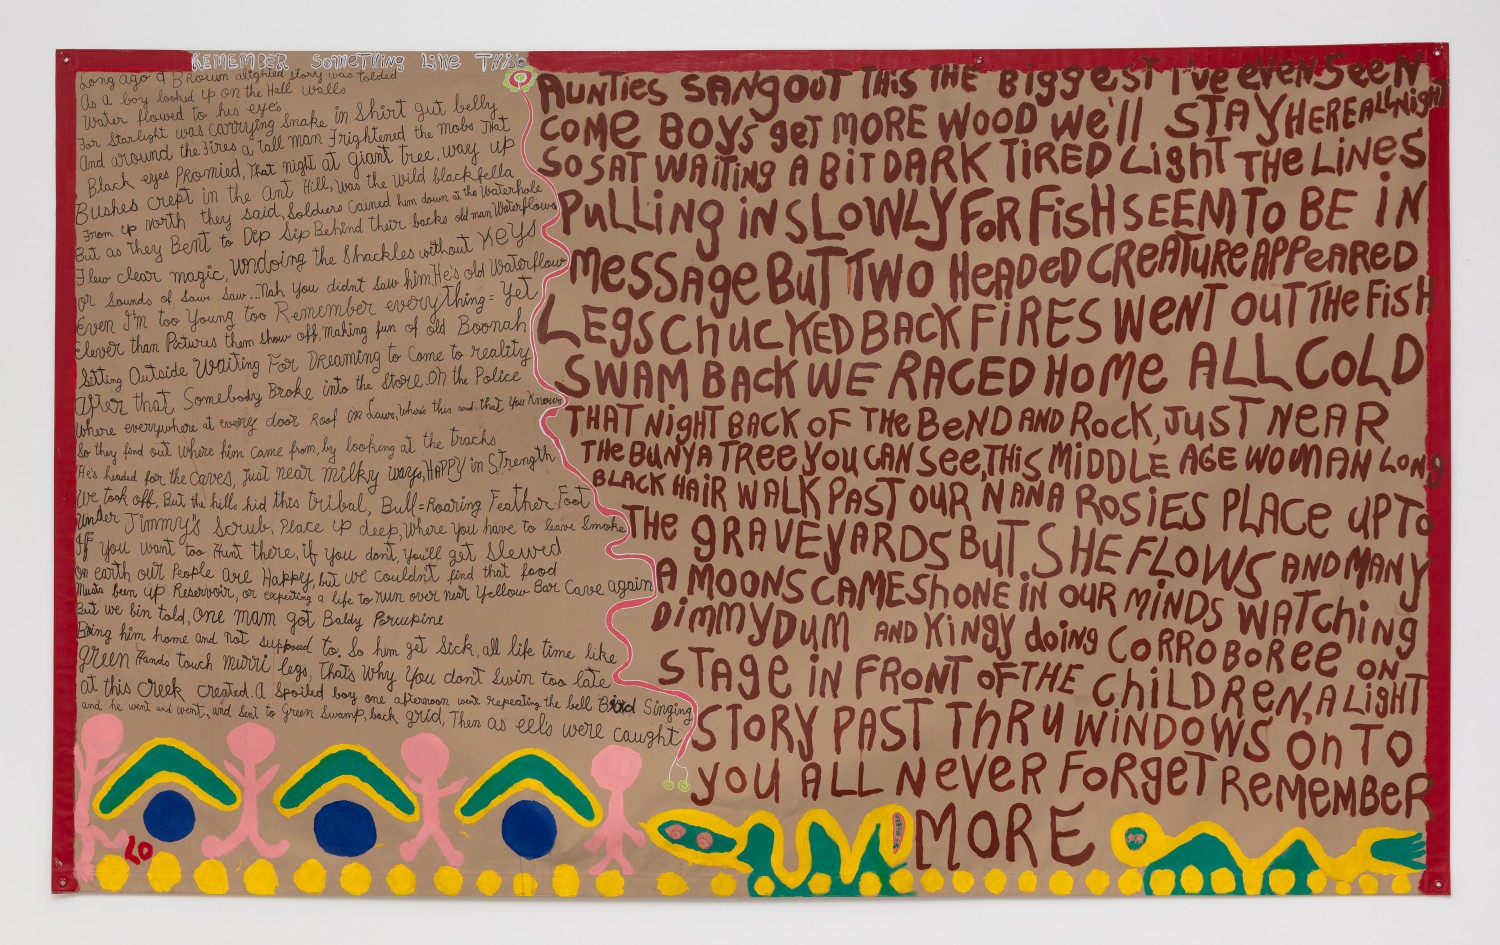 REMEMBER SOMETHING LIKE THIS
Long ago a Brown alighted story was tolded
As a boy looked up on the Hall walls
Water flowed to his eyes
For Starlight was carrying Snake in Shirt gut belly
And around the Fires a tall man Frightened the mobs That
Black eyes Promied, That night at giant tree, way up
Bushes crept in the Ant Hill, was the wild black fella
From up north they said, Soldiers Cained him down at the Waterhole
But as They Bent to Dip Sip Behind their backs old man Waterflows
Flew clear magic, undoing the Shackles without Keys
or Sounds of Saws Saw...Nah You didnt Saw him, He's old Waterflow
Even I'm too Young too Remember everything = Yet
Clever than Pictures them Show off, making fun of old Boonah
Sitting Outside Waiting For Dreaming to Come to reality
After that Somebody Broke into the Store. Oh the Police
Where everywhere at every door Roof Laws, Where's this and that You Know
So they find out Where him came from, by looking at the tracks
He's headed for the caves, Just near milky ways, HAPPY in Strength
We took off, But the hills hid this tribal, Bull=Roaring Feather Foot
under Jimmy's Scrub, Place up deep, Where You have to leave Smoke
If You want too Hunt there, if you dont, you'll get Slewed
on earth our People are Happy, but we couldn't find that food
Musta been up Reservoir, or expecting a life to run over near Yellow Bar Cave again
But we bin told, one mam got Baldy Porcupine
Bring him home and not supposed to. So him get Sick, all life time like
green Hands touch mirri legs, Thats Why You don't Swin too late
at this creek created. A Spoiled boy one afternoon went repeating the bell Bird Singing
and he went and went, and Sent to Green Swamp, back grid, Then as eels were caught
AUNTIES SANG OUT THIS THE BIGGEST I'VE EVEN SEEN
COME BOYS get MORE WOOD We'll STAY HERE ALL NIGHT
SO SAT WAITING A BIT DARK TIRED LIGHT THE LINES
PULLING IN SLOWLY FOR FISH SEEM TO BE IN
MESSAGE BUT TWO HEADED CREATURE APPEARED
LEGS CHUCKED BACK FIRES WENT OUT THE FISH
SWAM BACK WE RACED HOME ALL COLD
THAT NIGHT BACK OF THE BEND AND ROCK, JUST NEAR
THE BUNYA TREE YOU CAN SEE, THIS MIDDLE AGE WOMAN LONG
BLACK HAIR WALK PAST OUR NANA ROSIES PLACE UP TO
THE GRAVEYARDS BUT SHE FLOWS AND MANY
A MOONS CAME SHONE IN OUR MINDS WATCHING
DIMMYDUM AND KINGY doing CORROBOREE ON
STAGE IN FRONT OF THE CHILDREN, A LIGHT
STORY PAST THRU WINDOWS ON TO
YOU ALL NEVER FORGET REMEMBER
MORE
LO